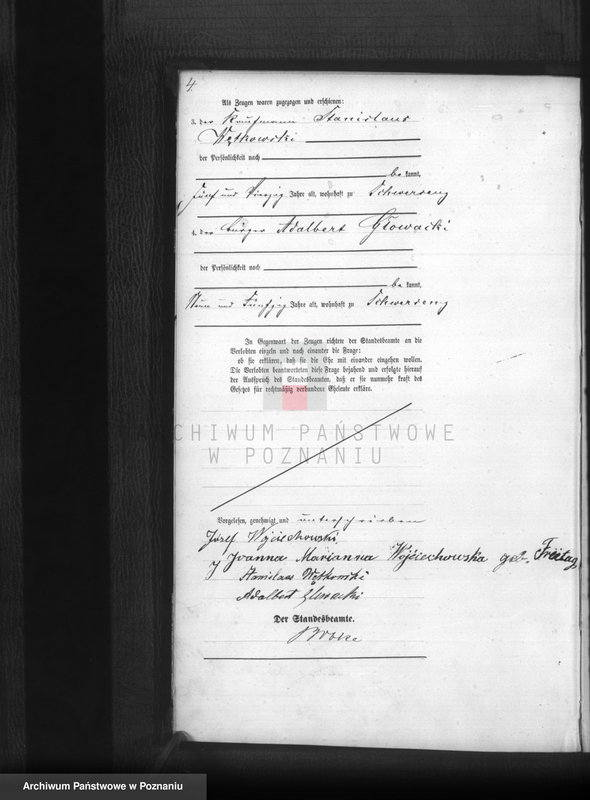 4.
Als Zeugen waren zugezogen und erschienen:
3. der Kaufmann Stanislaus
Wętkowski
der Persönlichkeit nach
be kannt,
fünf und vierzig Jahre alt, wohnhaft zu Schwersenz
4. der Bürger Adalbert Głowacki
der Persönlichkeit nach
be kannt,
Neun und Fünfzig Jahre alt, wohnhaft zu Schwersenz
In Gegenwart der Zeugen richtete der Standesbeamte an die
Verlobten einzeln und nach einander die Frage:
ob sie erklären, daß sie die Ehe mit einander eingehen wollen.
Die Verlobten beantworteten diese Frage bejahend und erfolgte hierauf
der Ausspruch des Standesbeamten, daß er sie nunmehr kraft des
Gesetzes für rechtmäßig verbundene Eheleute erkläre.
ARCHIWUM PAŃSTWOWE
W POZNANIU
Vorgelesen, genehmigt und unterschrieben
Józef Wojciechowski
Joanna Marianna Wojciechowska geb. Freitag
Stanislaus Wętkowski
Adalbert Głowacki
Der Standesbeamte.
Archiwum Państwowe w Poznaniu